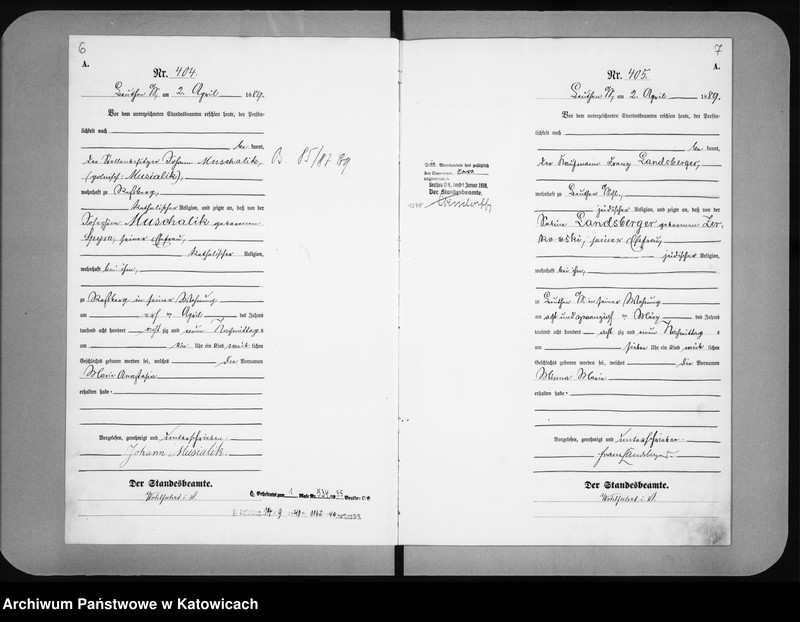 6
A.
Nr. 404.
Beuthen O/S, am 2. April 1889.
Vor dem unterzeichneten Standesbeamten erschien heute, der Persön-
lichkeit nach
be kannt,
der Stellenbesitzer Johann Muschalik,
(polnisch: Musialik),
wohnhaft zu Roßberg,
katholischer Religion, und zeigte an, daß von der
Muschalik geborenen
seiner Ehefrau,
katholischer Religion,
wohnhaft bei ihm,
zu Roßberg in seiner Wohnung
am April des Jahres
tausend acht hundert acht zig und neun Nachmittag s
um Uhr ein Kind weib lichen
Geschlechts geboren worden sei, welches die Vornamen
Marie Anastasia
erhalten habe.
Vorgelesen, genehmigt und unterschrieben.
Johann Musialik.
Der Standesbeamte.
Wohlfahrt i. V.
B 85/87
7
A.
Nr. 405.
Beuthen O/S, am 2. April 1889.
Vor dem unterzeichneten Standesbeamten erschien heute, der Persön-
lichkeit nach
be kannt,
der Kaufmann Franz Landsberger,
wohnhaft zu Beuthen O/S.,
jüdischer Religion, und zeigte an, daß von der
Landsberger geborenen Zer-
kowski, seiner Ehefrau,
jüdischer Religion,
wohnhaft bei ihm,
zu Beuthen O/S in seiner Wohnung
am acht und zwanzigsten März des Jahres
tausend acht hundert acht zig und neun Nachmittag s
um sieben Uhr ein Kind weib lichen
Geschlechts geboren worden sei, welches die Vornamen
Minna Marie
erhalten habe.
Vorgelesen, genehmigt und unterschrieben.
Franz Landsberger.
Der Standesbeamte.
Wohlfahrt i. V.
den Vornamen Sara
Beuthen O/S, den 1. Januar 1939.
Der Standesbeamte.
Archiwum Państwowe w Katowicach